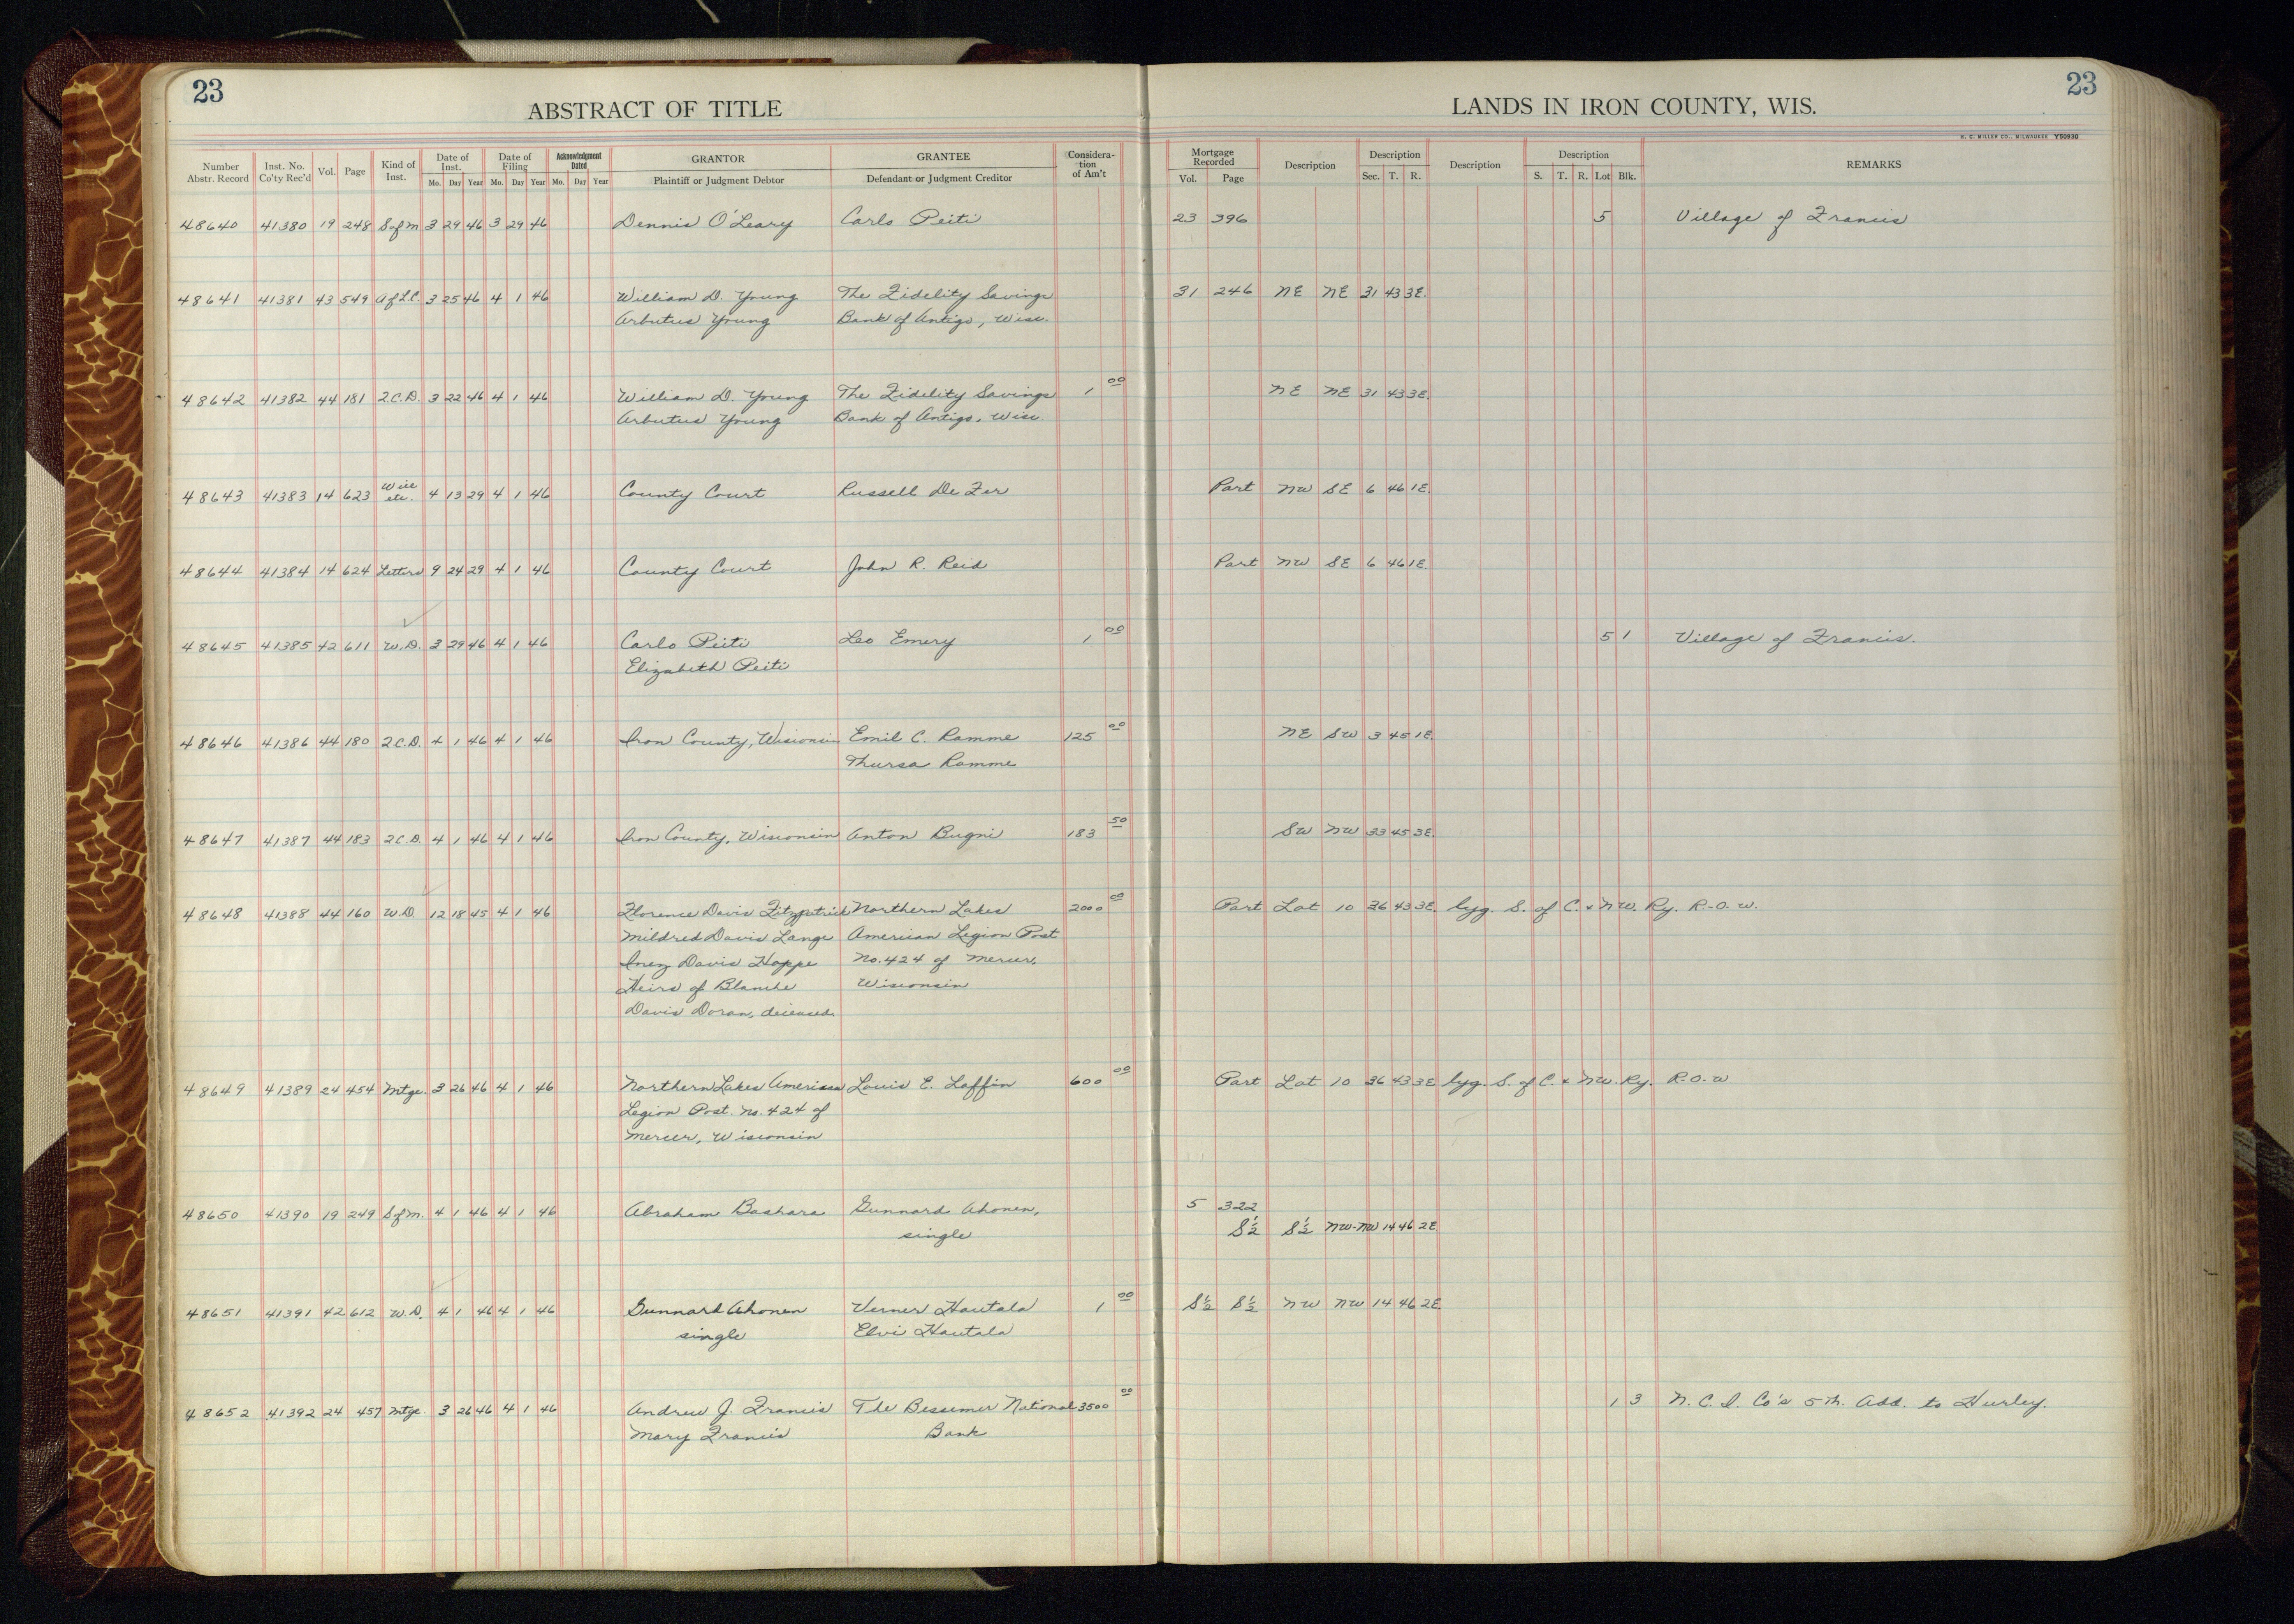 23
23
ABSTRACT OF TITLE
LANDS IN IRON COUNTY, WIS.
H. C. MILLER CO., MILWAUKEE Y50930
Number Abstr. Record Inst. No. Co'ty Rec'd Vol. Page Kind of Inst. Date of Inst. Mo. Day Year Date of Filing Mo. Day Year Acknowledgment Dated Mo. Day Year GRANTOR Plaintiff or Judgment Debtor GRANTEE Defendant or Judgment Creditor Considera-tion of Am't Mortgage Recorded Vol. Page Description Description Sec. T. R. Description Description S. T. R. Lot Blk. REMARKS
48640 41380 19 248 S of M 3 29 46 3 29 46 Dennis O'Leary Carlo Peiti 23 396 5 Village of Francis
48641 41381 43 549 A of L.C. 3 25 46 4 1 46 William D. Young The Fidelity Savings 31 246 NE NE 31 43 3E.
Arbutus Young Bank of Antigo, Wisc.
48642 41382 44 181 2.C.D. 3 22 46 4 1 46 William D. Young The Fidelity Savings 1 00 NE NE 31 43 3E.
Arbutus Young Bank of Antigo, Wisc.
48643 41383 14 623 Will etc. 4 13 29 4 1 46 County Court Russell De Fer Part NW SE 6 46 1E.
48644 41384 14 624 Letters 9 24 29 4 1 46 County Court John R. Reid Part NW SE 6 46 1E.
48645 41385 42 611 W.D. 3 29 46 4 1 46 Carlo Peiti Leo Emery 1 00 5 1 Village of Francis.
Elizabeth Peiti
48646 41386 44 180 2.C.D. 4 1 46 4 1 46 Iron County, Wisconsin Emil C. Ramme 125 00 NE SW 3 45 1E.
Thursa Ramme
48647 41387 44 183 2.C.D. 4 1 46 4 1 46 Iron County, Wisconsin Anton Bugni 183 50 SW NW 33 45 3E.
48648 41388 44 160 W.D. 12 18 45 4 1 46 Florence Davis Fitzpatrick Northern Lakes 2000 00 Part Lot 10 36 43 3E. lyg. S. of C. & NW. Ry. R.-O. W.
Mildred Davis Lange American Legion Post
Inez Davis Hoppe No. 424 of Mercer,
Heirs of Blanche Wisconsin
Davis Doran, deceased.
48649 41389 24 454 Mtge. 3 26 46 4 1 46 Northern Lakes American Louis E. Laffin 600 00 Part Lot 10 36 43 3E lyg. S. of C. & NW. Ry. R.O.W
Legion Post. No. 424 of
Mercer, Wisconsin
48650 41390 19 249 S of M. 4 1 46 4 1 46 Abraham Bashara Gunnard Ahonen, 5 322
single S½ S½ NW-NW 14 46 2E.
48651 41391 42 612 W.D. 4 1 46 4 1 46 Gunnard Ahonen Verner Hautala 1 00 S½ S½ NW NW 14 46 2E.
single Elvi Hautala
48652 41392 24 457 Mtge. 3 26 46 4 1 46 Andrew J. Francis The Bessemer National 3500 00 1 3 N. C. I. Co's 5th. Add. to Hurley.
Mary Francis Bank